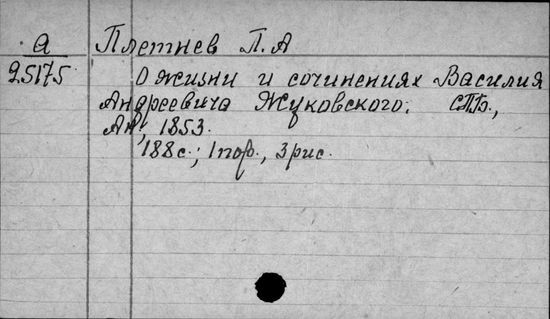 А
25175
Плетнев П.А
О жизни и сочинениях Василия
Андреевича Жуковского. СПб.,
Ан, 1853.
188с.; 1 пор., 3 рис.